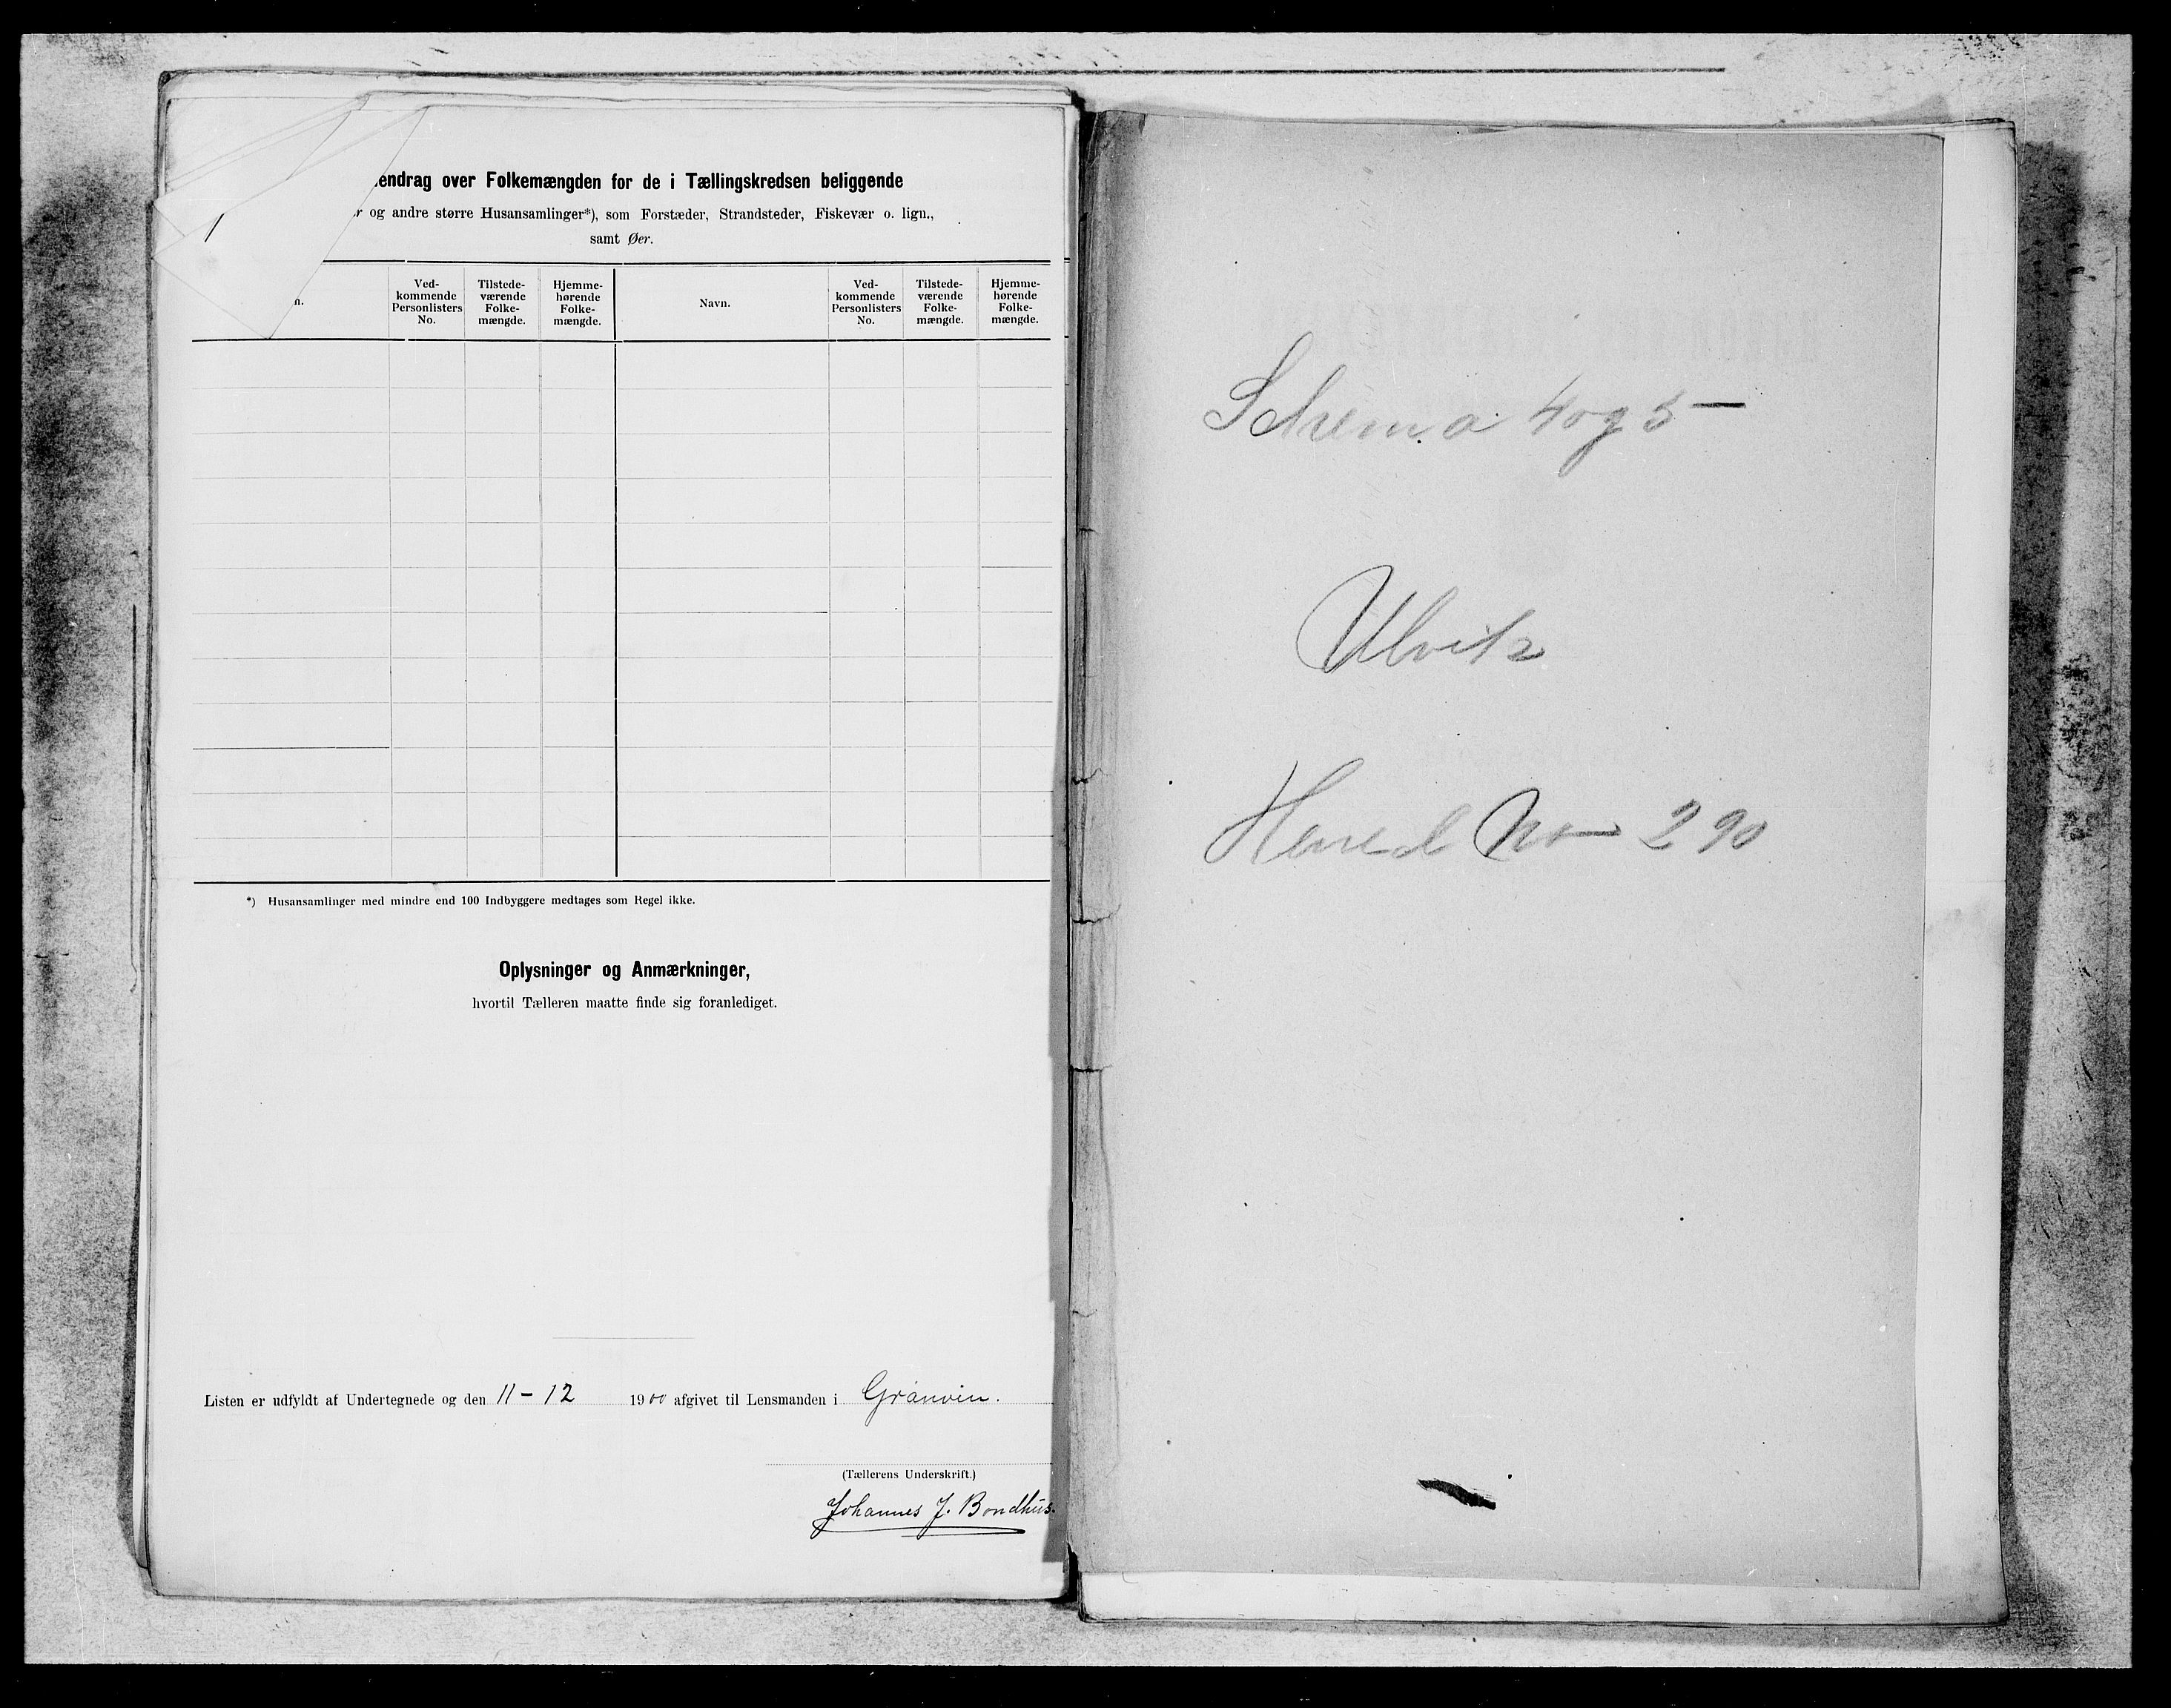 endrag over Folkemængden for de i Tællingskredsen beliggende
r og andre større Husansamlinger*), som Forstæder, Strandsteder, Fiskevær o. lign.,
samt Øer.
n.
Ved-
kommende
Personlisters
No.
Tilstede-
værende
Folke-
mængde.
Hjemme-
hørende
Folke-
mængde.
Navn.
Ved-
kommende
Personlisters
No.
Tilstede-
værende
Folke-
mængde.
Hjemme-
hørende
Folke-
mængde.
*) Husansamlinger med mindre end 100 Indbyggere medtages som Regel ikke.
Oplysninger og Anmærkninger,
hvortil Tælleren maatte finde sig foranlediget.
Listen er udfyldt af Undertegnede og den 11 - 12 1900 afgivet til Lensmanden i Granvin.
(Tællerens Underskrift.)
Johannes J. Bondhus.
Schema 4 og 5 —
Ulvik
Hered No 290